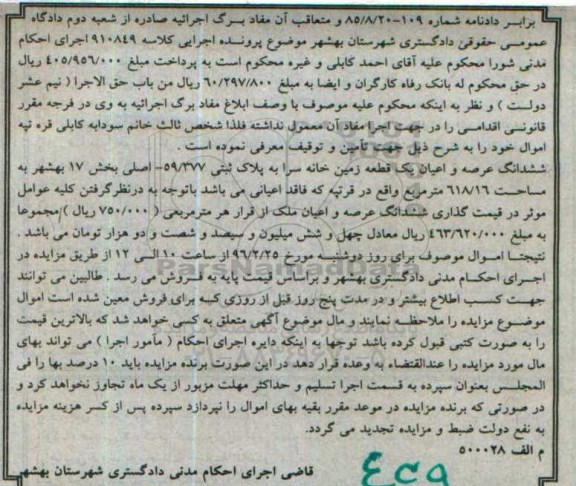 برابر دادنامه شماره ۱۰۹-۸۵/۸/۲۰ و متعاقب آن مفاد برگ اجرائیه صادره از شعبه دوم دادگاه
عمومی حقوقی دادگستری شهرستان بهشهر موضوع پرونده اجرایی کلاسه ۹۱۰۸۴۹ اجرای احکام
مدنی شورا محکوم علیه آقای احمد کابلی و غیره محکوم است به پرداخت مبلغ ۴۰۵/۹۵۶/۰۰۰ ریال
در حق محکوم له بانک رفاه کارگران و ایضا به مبلغ ۶۰/۲۹۷/۸۰۰ ریال من باب حق الاجرا ( نیم عشر
دولت ) و نظر به اینکه محکوم علیه موصوف با وصف ابلاغ مفاد برگ اجرائیه به وی در فرجه مقرر
قانونی اقدامی را در جهت اجرا مفاد آن معمول نداشته فلذا شخص ثالث خانم سودابه کابلی قره تپه
اموال خود را به شرح ذیل جهت تأمین و توقیف معرفی نموده است .
ششدانگ عرصه و اعیان یک قطعه زمین خانه سرا به پلاک ثبتی ۵۹/۳۷۷- اصلی بخش ۱۷ بهشهر به
مساحت ۶۱۸/۱۶ مترمربع واقع در قرتپه که فاقد اعیانی می باشد باتوجه به درنظرگرفتن کلیه عوامل
موثر در قیمت گذاری ششدانگ عرصه و اعیان ملک از قرار هر مترمربعی ( ۷۵۰/۰۰۰ ریال )مجموعا
به مبلغ ۴۶۳/۶۲۰/۰۰۰ ریال معادل چهل و شش میلیون و سیصد و شصت و دو هزار تومان می باشد .
نتیجتا اموال موصوف برای روز دوشنبه مورخ ۹۶/۲/۲۵ از ساعت ۱۰ الی ۱۲ از طریق مزایده در
اجرای احکام مدنی دادگستری بهشهر و براساس قیمت پایه به فروش می رسد . طالبین می توانند
جهت کسب اطلاع بیشتر و در مدت پنج روز قبل از روزی که برای فروش معین شده است اموال
موضوع مزایده را ملاحظه نمایند و مال موضوع آگهی متعلق به کسی خواهد شد که بالاترین قیمت
را به صورت کتبی قبول کرده باشد توجها به اینکه دایره اجرای احکام ( مأمور اجرا ) می تواند بهای
مال مورد مزایده را عندالقتضاء به وعده قرار دهد در این صورت برنده مزایده باید ۱۰ درصد بها را فی
المجلس بعنوان سپرده به قسمت اجرا تسلیم و حداکثر مهلت مزبور از یک ماه تجاوز نخواهد کرد و
در صورتی که برنده مزایده در موعد مقرر بقیه بهای اموال را نپردازد سپرده پس از کسر هزینه مزایده
به نفع دولت ضبط و مزایده تجدید می گردد.
م الف ۵۰۰۰۲۸
قاضی اجرای احکام مدنی دادگستری شهرستان بهشهر
ParsNamadData